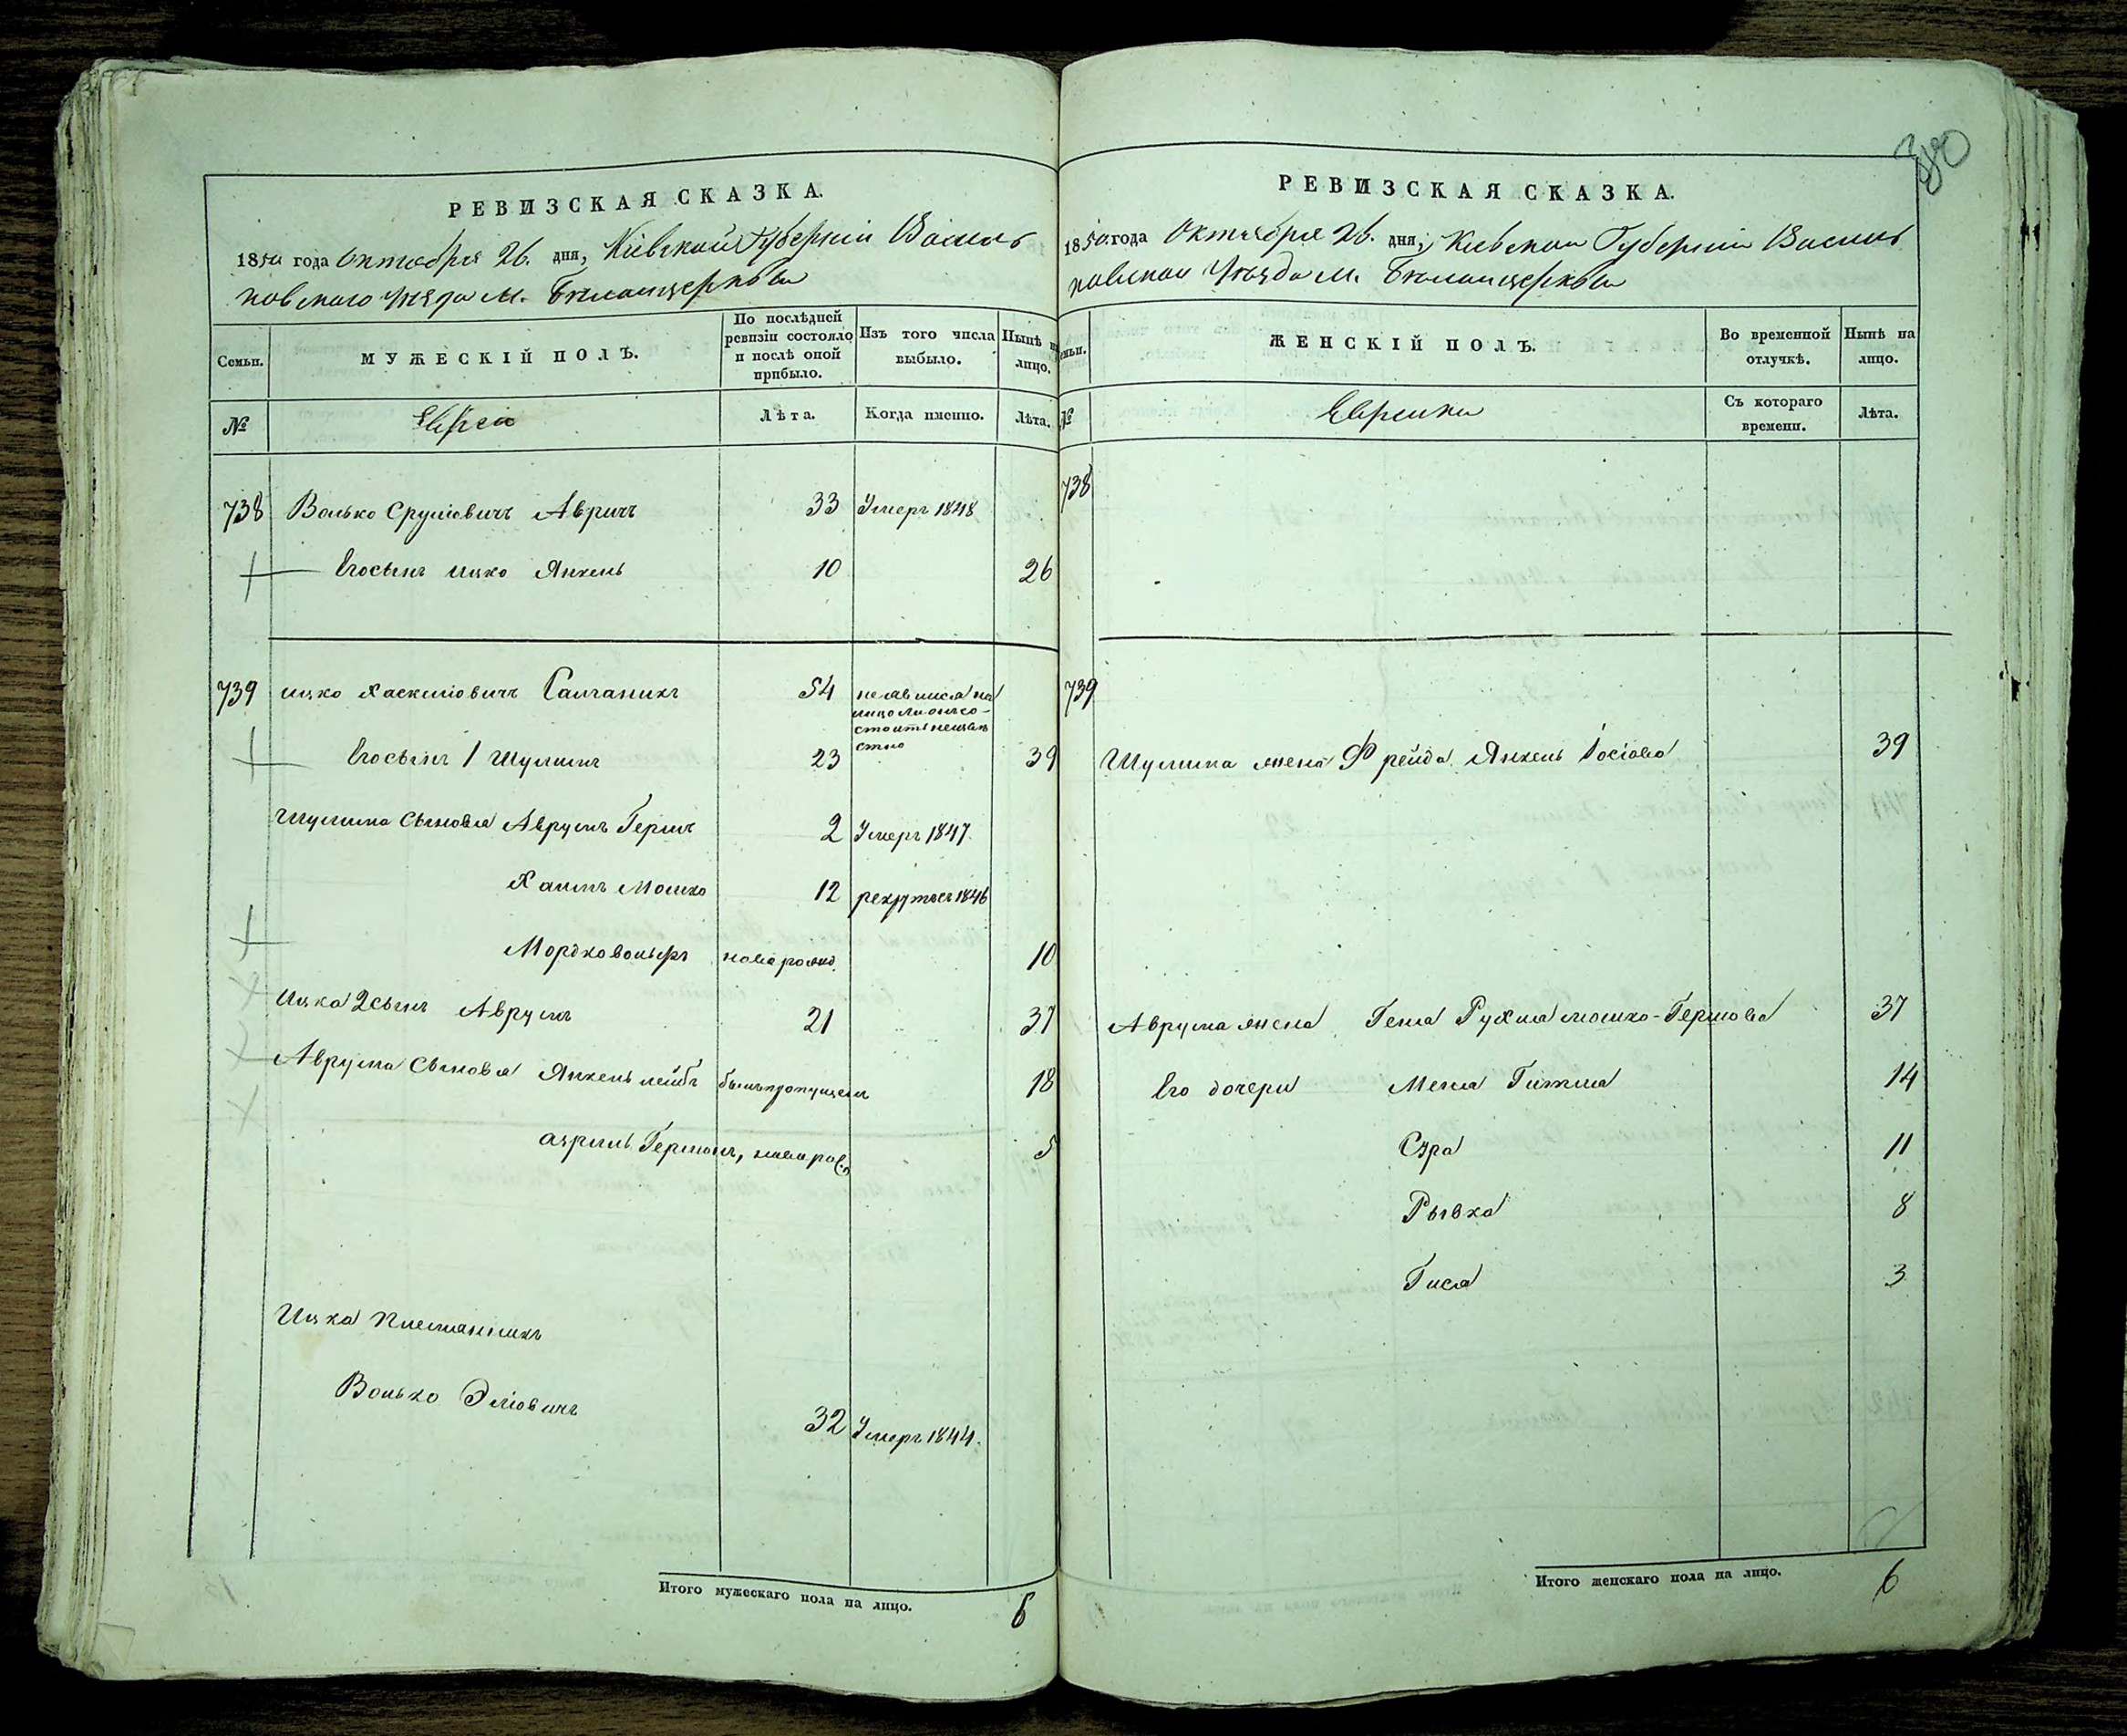 380
РЕВИЗСКАЯ СКАЗКА.
1850 года Октября 26. дня, Кіевской Губерніи Василь
ковского Уѣзда м. Бѣлоцерковь
Семьи.
МУЖЕСКІЙ ПОЛЪ.
По послѣдней ревизіи состояло и послѣ оной прибыло.
Изъ того числа выбыло.
Нынѣ на лицо.
№
Евреи
Лѣта.
Когда именно.
Лѣта.
738 Волько Сруліовичъ Авричъ 33 Умеръ 1848
Его сынъ Ицко Янкель 10 26
739 Ицко Хаскиліовичъ Салганикъ 54 неявился на
лицо ли онъ со-
стоитъ неизвѣ
стно
Его сынъ 1 Шулимъ 23 39
Шулима Сыновья Аврумъ Гершъ 2 Умеръ 1847
Хаимъ Мошко 12 рекрутъ 1846
Мордко вольфъ новорожд. 10
Ицка 2 сынъ Аврумъ 21 37
Аврума Сыновья Янкель лейбъ былъ пропущенъ 18
Азриль Гершонъ, новорож 5
Ицка племянникъ
Волько Эліовичъ 32 Умеръ 1844.
Итого мужескаго пола на лицо. 6
РЕВИЗСКАЯ СКАЗКА.
1850. года Октября 26. дня, Кіевской Губерніи Василь
ковскаго Уѣзда м. Бѣлоцерковь
Семьи.
ЖЕНСКІЙ ПОЛЪ.
Во временной отлучкѣ.
Нынѣ на лицо.
№
Еврейки
Съ котораго времени.
Лѣта.
738
739
Шулима жена Фрейда Янкель Іосіова 39
Аврума жена Геня Рухля мошко-Гершова 37
Его дочери Меня Гитля 14
Сура 11
Рывка 8
Гися 3
Итого женскаго пола на лицо. 6